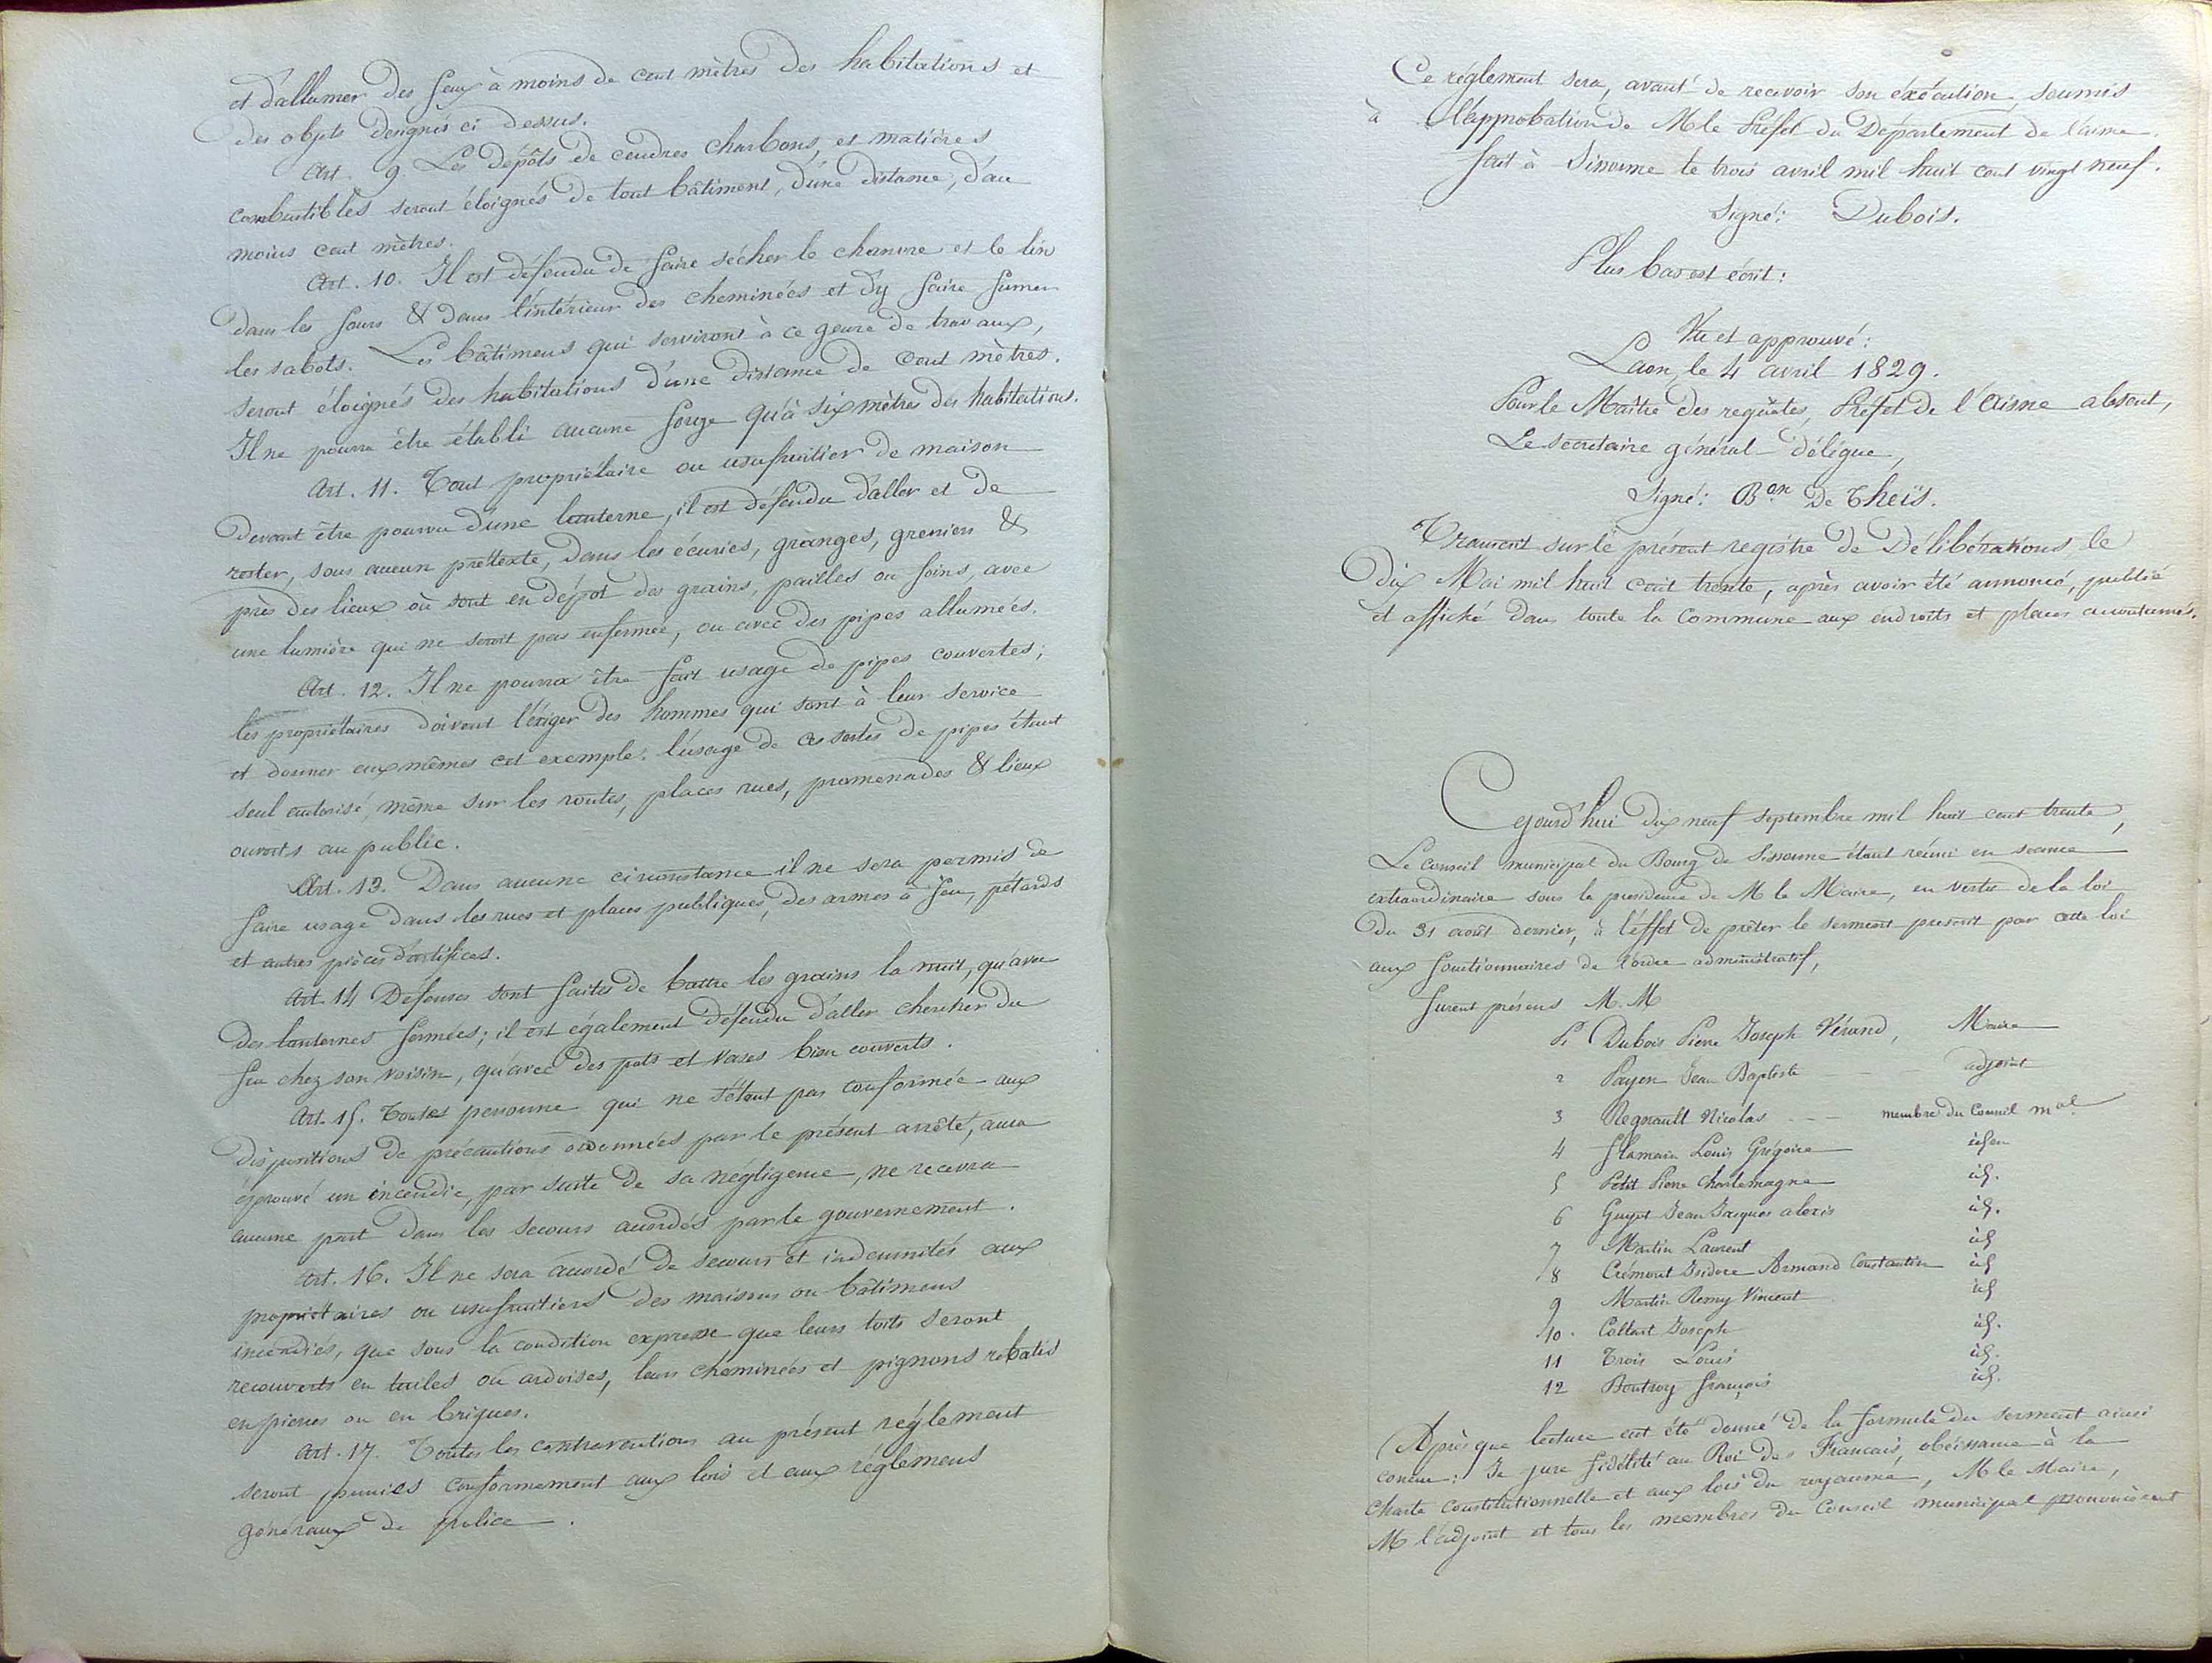 et d'allumer des feux à moins de cent mètres des habitations et
des objets designés ci dessus.
Art. 9. Les dépôts de cendres charbons, et matières
combustibles seront éloignés de tout bâtiment, d'une distance, d'au
moins cent mètres.
Art. 10. Il est défendu de faire sécher le chanvre et le lin
dans les fours & dans l'intérieur des cheminées et d'y faire fumer
les sabots. Les bâtimens qui serviront à ce genre de travaux,
seront éloignés des habitations d'une distance de cent mètres.
Il ne pourra être établi aucune forge qu'à six mètres des habitations.
Art. 11. Tout propriétaire ou usufruitier de maison
devant être pourvu d'une lanterne, il est défendu d'aller et de
rester, sous aucun prétexte, dans les écuries, granges, greniers &
près des lieux où sont en dépot des grains, pailles ou foins, avec
une lumière qui ne serait pas enfermée, ou avec des pipes allumées.
Art. 12. Il ne pourra être fait usage de pipes couvertes;
les propriétaires doivent l'éxiger des hommes qui sont à leur service
et donner eux mêmes cet exemple. l'usage de ces sortes de pipes étant
seul autorisé, même sur les routes, places rues, promenades & lieux
ouverts au public.
Art. 13. Dans aucune circonstance il ne sera permis de
faire usage dans les rues et places publiques, des armes à feu, pétards
et autres pièces d'artifices.
Art. 14 Défenses sont faites de battre les grains la nuit, qu'avec
des lanternes fermées; il est également défendu d'aller chercher du
feu chez son voisin, qu'avec des pots et vases bien couverts.
Art. 15. Toutes personne qui ne s'étant pas conformée aux
dispositions de précautions ordonnées par le présent arrêté, aura
éprouvé un incendie, par suite de sa négligence, ne recevra
aucune part dans les secours accordés par le gouvernement.
Art. 16. Il ne sera accordé de secours et indemnités aux
propriétaires ou usufruitiers des maisons ou bâtimens
incendiés, que sous la condition expresse que leurs toits seront
recouverts en tuiles ou ardoises, leurs cheminées et pignons rebatis
en pierres ou en briques.
Art. 17. Toutes les contraventions au présent réglement
seront punies conformement aux lois et aux réglemens
généraux de police.
Ce réglement sera, avant de recevoir son éxécution, soumis
à l'approbation de M le Préfet du Département de l'aisne.
fait à Sissonne le trois avril mil huit cent vingt neuf.
Signé: Dubois.
Plus bas est écrit:
Vu et approuvé:
Laon, le 4 avril 1829.
Pour le Maître des requêtes, Préfet de l'Aisne absent,
Le secretaire général délégué,
Signé: Bon De Theïs.
Transcrit sur le présent registre de Délibérations, le
Dix Mai mil huit cent trente, après avoir été annoncé, publié
et affiché dans toute la Commune aux endroits et places accoutumés.
Cejourd'hui dix neuf septembre mil huit cent trente,
Le conseil municipal du Bourg de Sissonne étant réuni en seance
extraordinaire sous la presidence de M le Maire, en vertu de la loi
du 31 août dernier, à l'effet de prêter le serment prescrit par cette loi
aux fonctionnaires de l'ordre administratif,
furent présens M.M
1. Dubois Pierre Joseph Vérand, Maire
2 Payen Jean Baptiste adjoint
3 Regnault Nicolas membre du Conseil mal
4 Flamain Louis Grégoire idem
5 Petit Pierre Charlemagne id.
6 Guyot Jean Jacques alexis id.
7 Martin Laurent id
8 Crémont Isidore Armand Constantin id
9 Martin Remy Vincent id
10. Collart Joseph id.
11 Trois Louis id.
12 Boutroy François id.
Après que lecture eut été donné de la formule du serment ainsi
concue: Je jure fidélité au Roi des Francais, obéissance à la
charte constitutionnelle et aux lois du royaume, M le Maire,
M l'adjoint et tous les membres du Conseil municipal prononcèrent